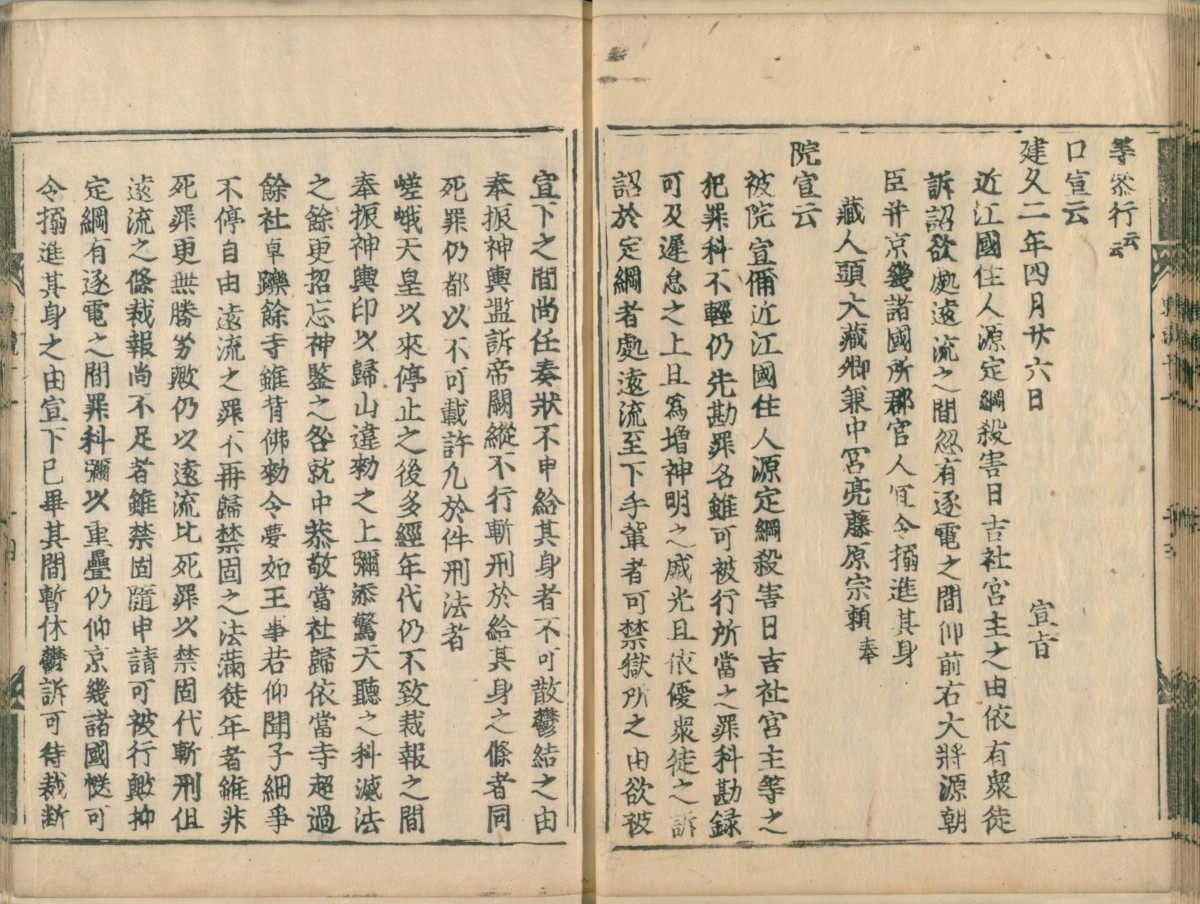 等畧行云云
口宣云
建久二年四月廿六日　宣旨
近江國住人源定綱殺害日吉社宮主之由依有衆徒
訴詔欲處遠流之間忽有逐電之間仰前右大將源朝
臣并京畿諸國所郡官人宜令搦進其身
藏人頭大藏卿兼中宮亮藤原宗頼奉
院宣云
被院宣偁近江國住人源定綱殺害日吉社宮主等之
犯罪科不輕仍先勘罪名雖可被行所當之罪科勘録
可及遲怠之上且爲增神明之威光且依優衆徒之訴
詔於定綱者處遠流至下手輩者可禁獄所之由欲被
宣下之間尚任奏狀不申給其身者不可散鬱結之由
奉振神輿濫訴帝闕縱不行斬刑於給其身之條者同
死罪仍都以不可載許凡於件刑法者
嵯峨天皇以來停止之後多經年代仍不致裁報之間
奉振神輿印以歸山違勅之上彌添驚天聽之科滅法
之餘更招忘神鑒之咎就中恭敬當社歸依當寺超過
餘社卓躒餘寺雖背佛勅令夢如王事若仰聞子細爭
不停自由遠流之罪不再歸禁固之法滿徒年者雖非
死罪更無勝劣歟仍以遠流比死罪以禁固代斬刑但
遠流之條裁報尚不足者雖禁固隨申請可被行歟抑
定綱有逐電之間罪科彌以重疊仍仰京畿諸國慥可
令搦進其身之由宣下已畢其間暫休鬱訴可待裁斷